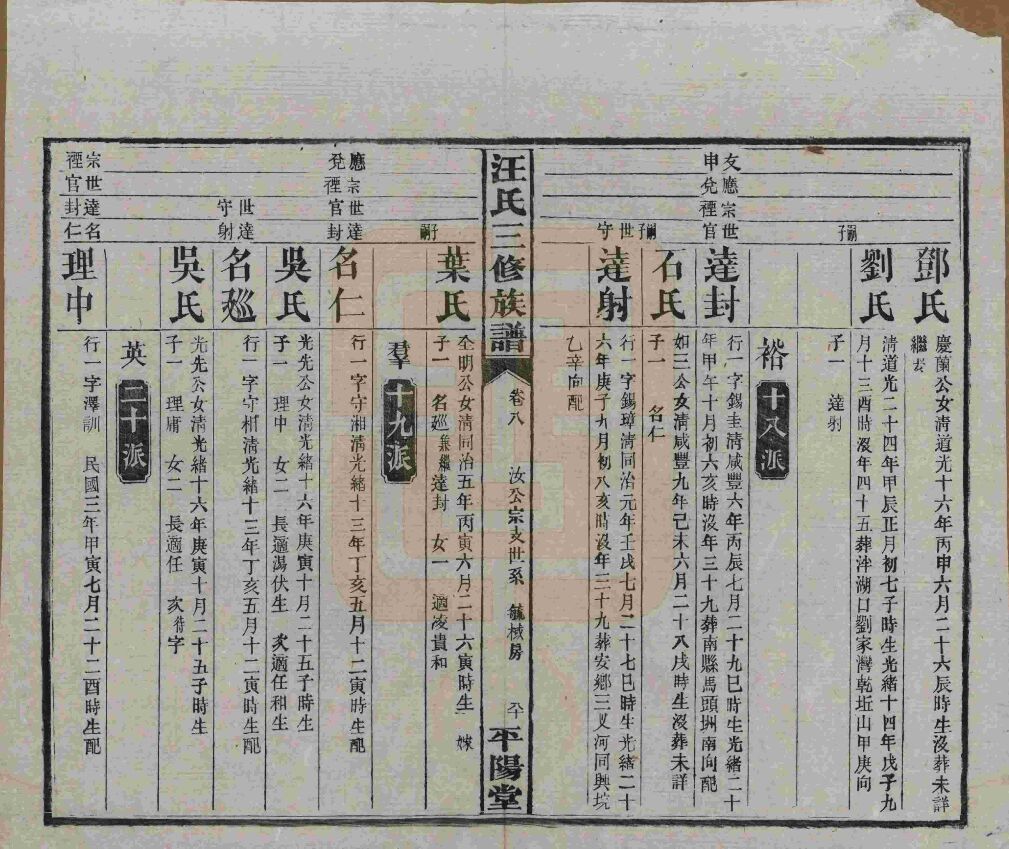 鄧氏
慶蘭公女清道光十六年丙申六月二十六辰時生沒葬未詳
繼去
嗣子
劉氏
清道光二十四年甲辰正月初七子時生光緒十四年戊子九
月十三酉時沒年四十五葬泮湖口劉家灣乾坵山甲庚向
子一 達射
裕 十八派
文應宗世
申兌禋官
達封
行一字錫圭清咸豐六年丙辰七月二十九巳時生光緒二十
年甲午十月初六亥時沒年三十九葬南縣馬頭洲南向配
石氏
如三公女清咸豐九年己未六月二十八戌時生沒葬未詳
子一 名仁
嗣子世守
達射
行一字錫璋清同治元年壬戌七月二十七巳時生光緒二十
六年庚子九月初八亥時沒年三十九葬安鄉三叉河同興垸
乙辛向配
汪氏三修族譜
卷八 汝公宗支世系 毓棫房 卆
平陽堂
嗣子
葉氏
全明公女清同治五年丙寅六月二十六寅時生 嫁
子一 名廵兼繼達封 女一 適凌貴和
羣 十九派
應宗世達
兌禋官封
名仁
行一字守湘清光緒十三年丁亥五月十二寅時生配
吳氏
光先公女清光緒十六年庚寅十月二十五子時生
子一 理中 女二 長適湯伏生 次適任和生
世達
守射
名廵
行一字守相清光緒十三年丁亥五月十二寅時生配
吳氏
光先公女清光緒十六年庚寅十月二十五子時生
子一 理庸 女二 長適任 次待字
英 二十派
宗世達名
禋官封仁
理中
行一字澤訓 民國三年甲寅七月二十二酉時生配